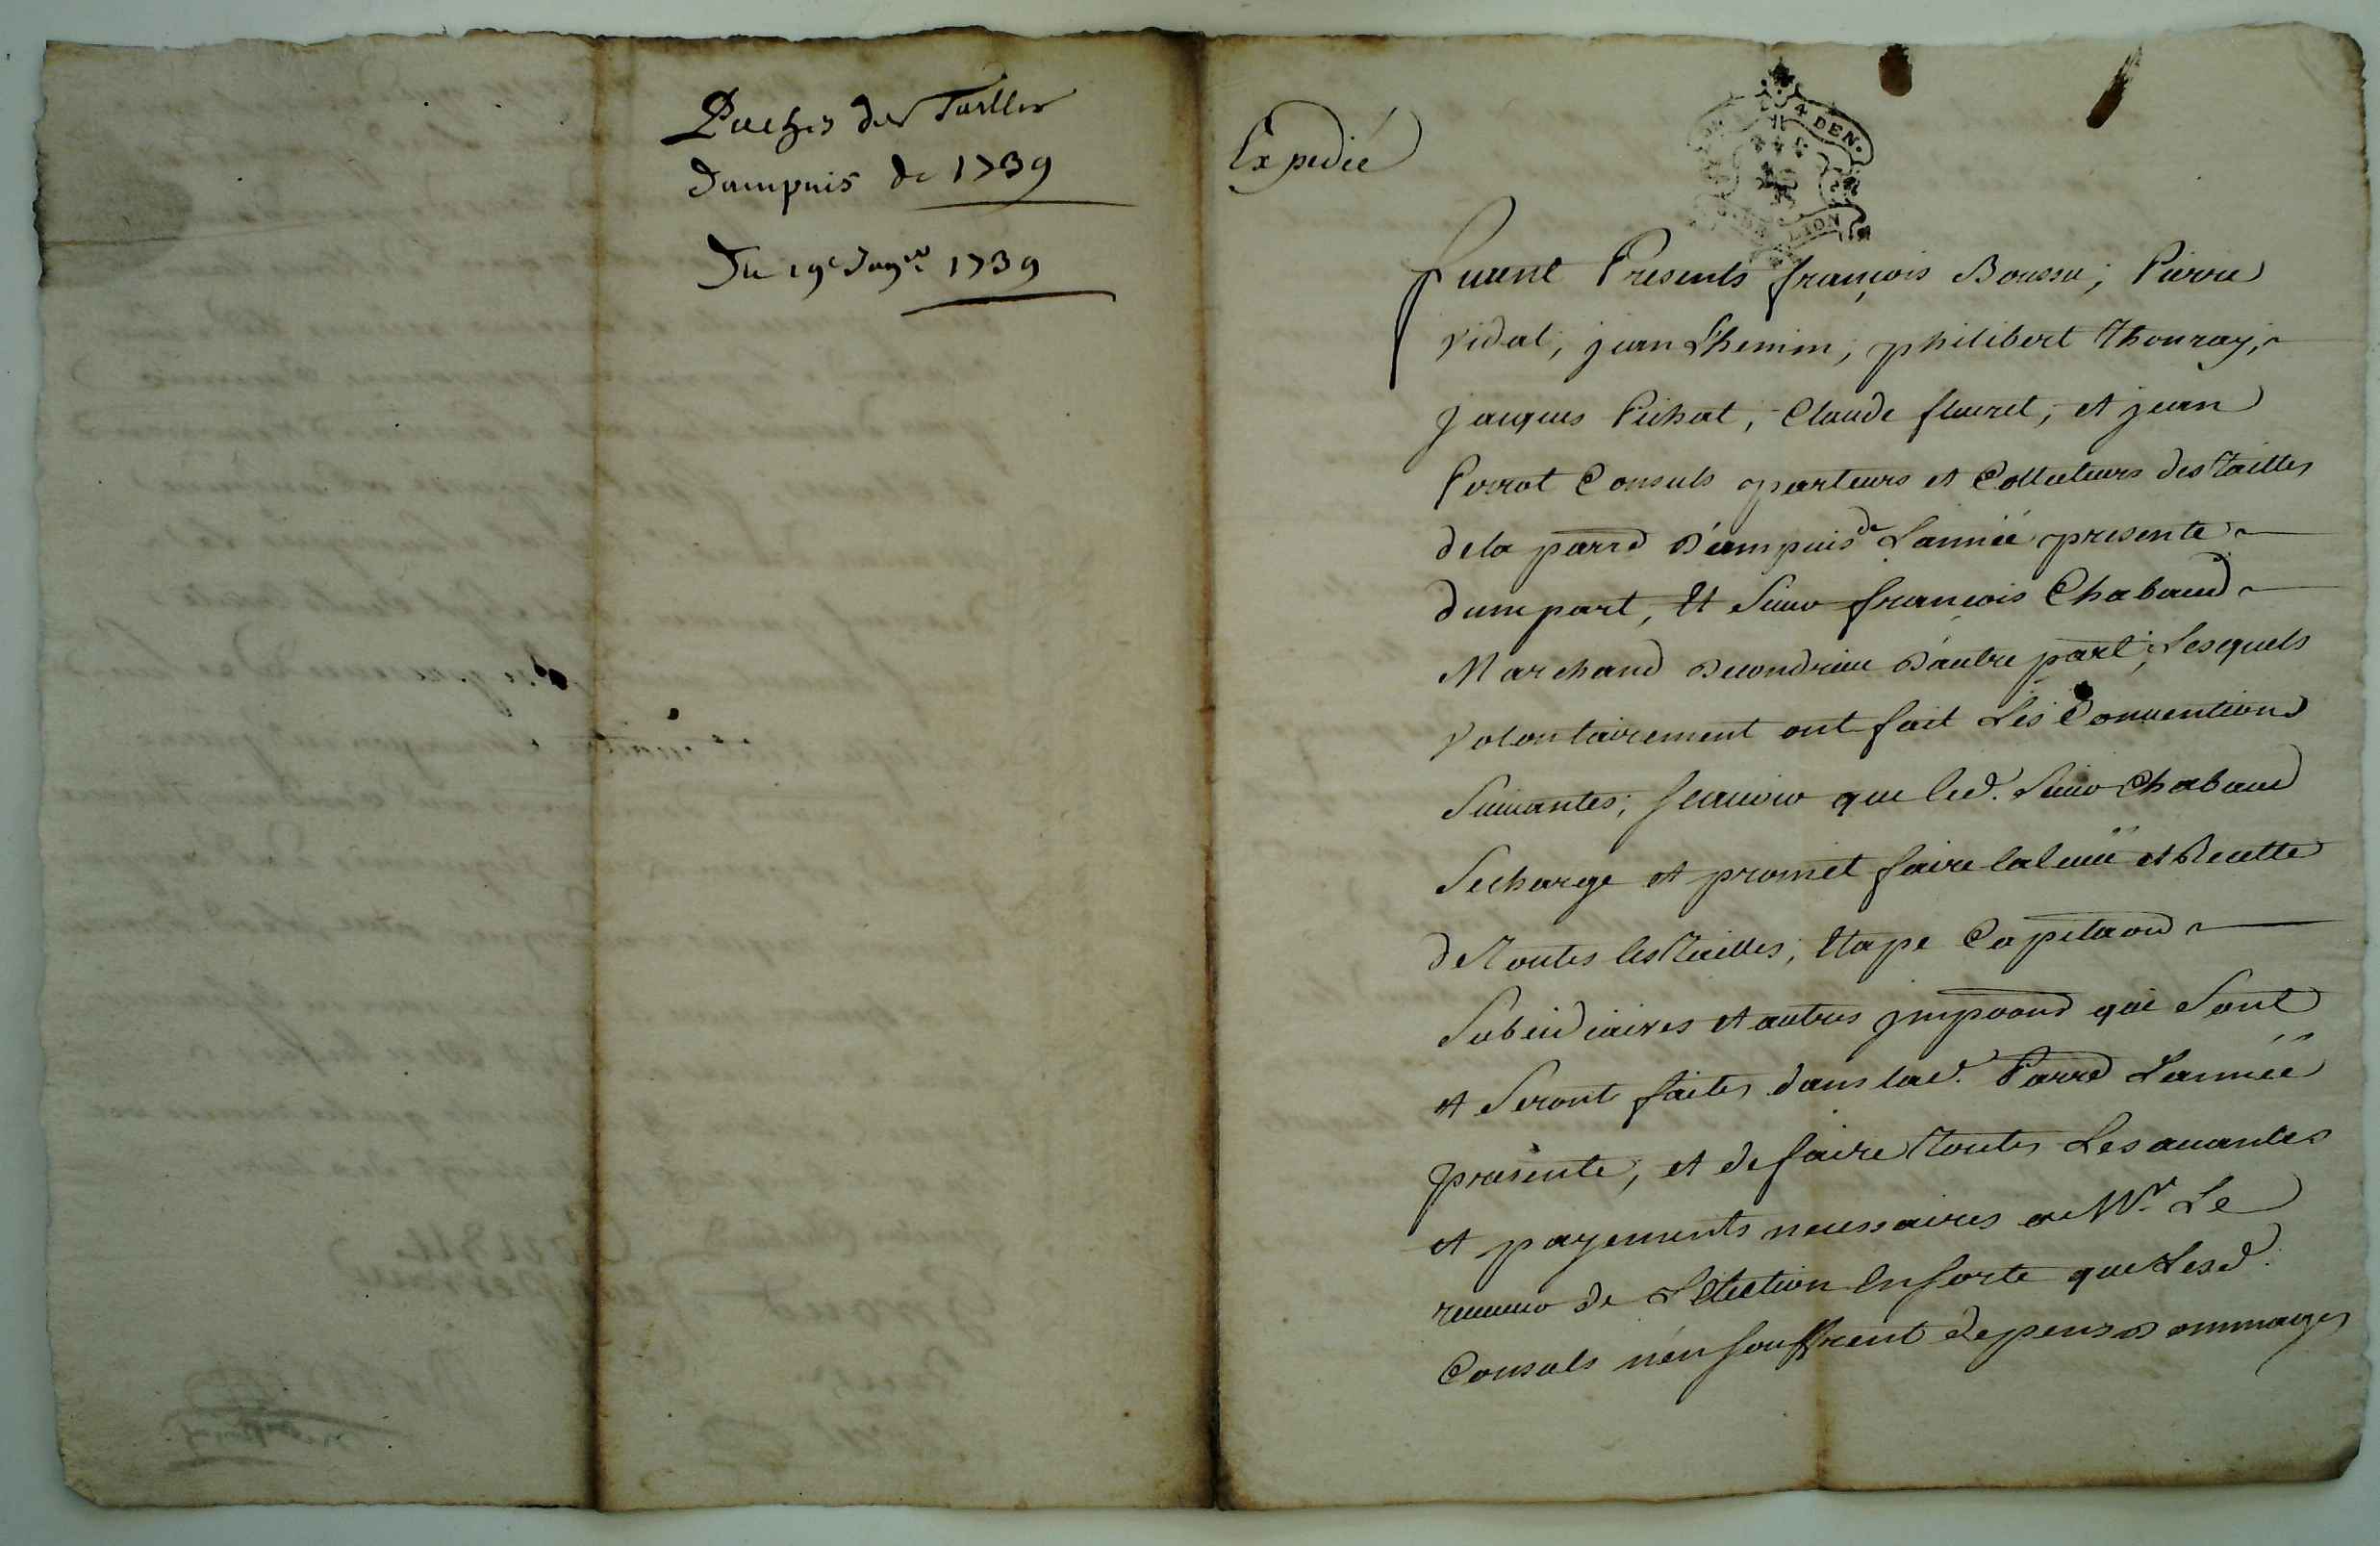 Paches des Tailles
dampuis de 1739
Du 19e Janv. 1739
Expedié
4 DEN.
LION
furent Presents françois Boussu; Pierre
vidal, jean Chemin, philibert Thouray,
jacques Pichat, Claude fleuret, et jean
Perrot Consuls parteurs et Collecteurs des Tailles
dela parred d'ampuis de Lannéé presente
dune part, Et Sieur françois Chabaud
Marchand decondrieu d'autre part, Lesquels
volontairement ont fait Les Conuentions
Suiuantes; scauoir que led. Sieur Chabaud
Secharge et promet faire laleueë et Recette
de Toutes les Tailles, Etape Capitaon
Subsidiaires et autres jmpoons qui Sont
et Seront faites dans lad. Parred Lannéé
presente, et de faire Toutes Les auances
et payements necessaires a Mr. Le
receueur de Lélection Ensorte que Lesd.
Consuls n'en souffrent depens dommages